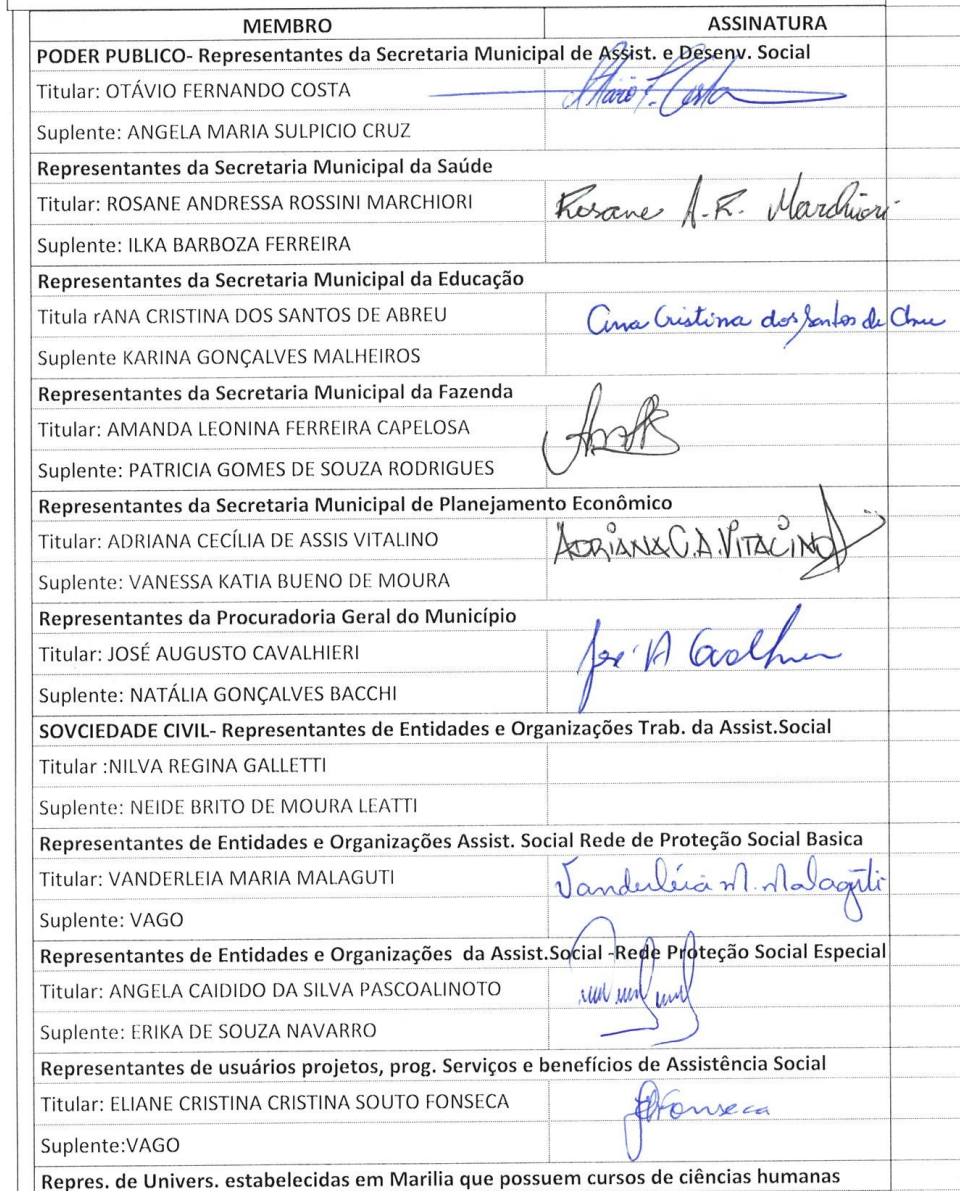 MEMBRO ASSINATURA
PODER PUBLICO- Representantes da Secretaria Municipal de Assist. e Desenv. Social
Titular: OTÁVIO FERNANDO COSTA
Suplente: ANGELA MARIA SULPICIO CRUZ
Representantes da Secretaria Municipal da Saúde
Titular: ROSANE ANDRESSA ROSSINI MARCHIORI Rosane A. R. Marchiori
Suplente: ILKA BARBOZA FERREIRA
Representantes da Secretaria Municipal da Educação
Titula rANA CRISTINA DOS SANTOS DE ABREU Ana Cristina dos Santos de
Suplente KARINA GONÇALVES MALHEIROS
Representantes da Secretaria Municipal da Fazenda
Titular: AMANDA LEONINA FERREIRA CAPELOSA
Suplente: PATRICIA GOMES DE SOUZA RODRIGUES
Representantes da Secretaria Municipal de Planejamento Econômico
Titular: ADRIANA CECÍLIA DE ASSIS VITALINO ADRIANA C. A. VITALINO
Suplente: VANESSA KATIA BUENO DE MOURA
Representantes da Procuradoria Geral do Município
Titular: JOSÉ AUGUSTO CAVALHIERI José A
Suplente: NATÁLIA GONÇALVES BACCHI
SOVCIEDADE CIVIL- Representantes de Entidades e Organizações Trab. da Assist.Social
Titular :NILVA REGINA GALLETTI
Suplente: NEIDE BRITO DE MOURA LEATTI
Representantes de Entidades e Organizações Assist. Social Rede de Proteção Social Basica
Titular: VANDERLEIA MARIA MALAGUTI Vanderléia M. Malagúti
Suplente: VAGO
Representantes de Entidades e Organizações da Assist.Social -Rede Proteção Social Especial
Titular: ANGELA CAIDIDO DA SILVA PASCOALINOTO
Suplente: ERIKA DE SOUZA NAVARRO
Representantes de usuários projetos, prog. Serviços e benefícios de Assistência Social
Titular: ELIANE CRISTINA CRISTINA SOUTO FONSECA Fonseca
Suplente:VAGO
Repres. de Univers. estabelecidas em Marilia que possuem cursos de ciências humanas